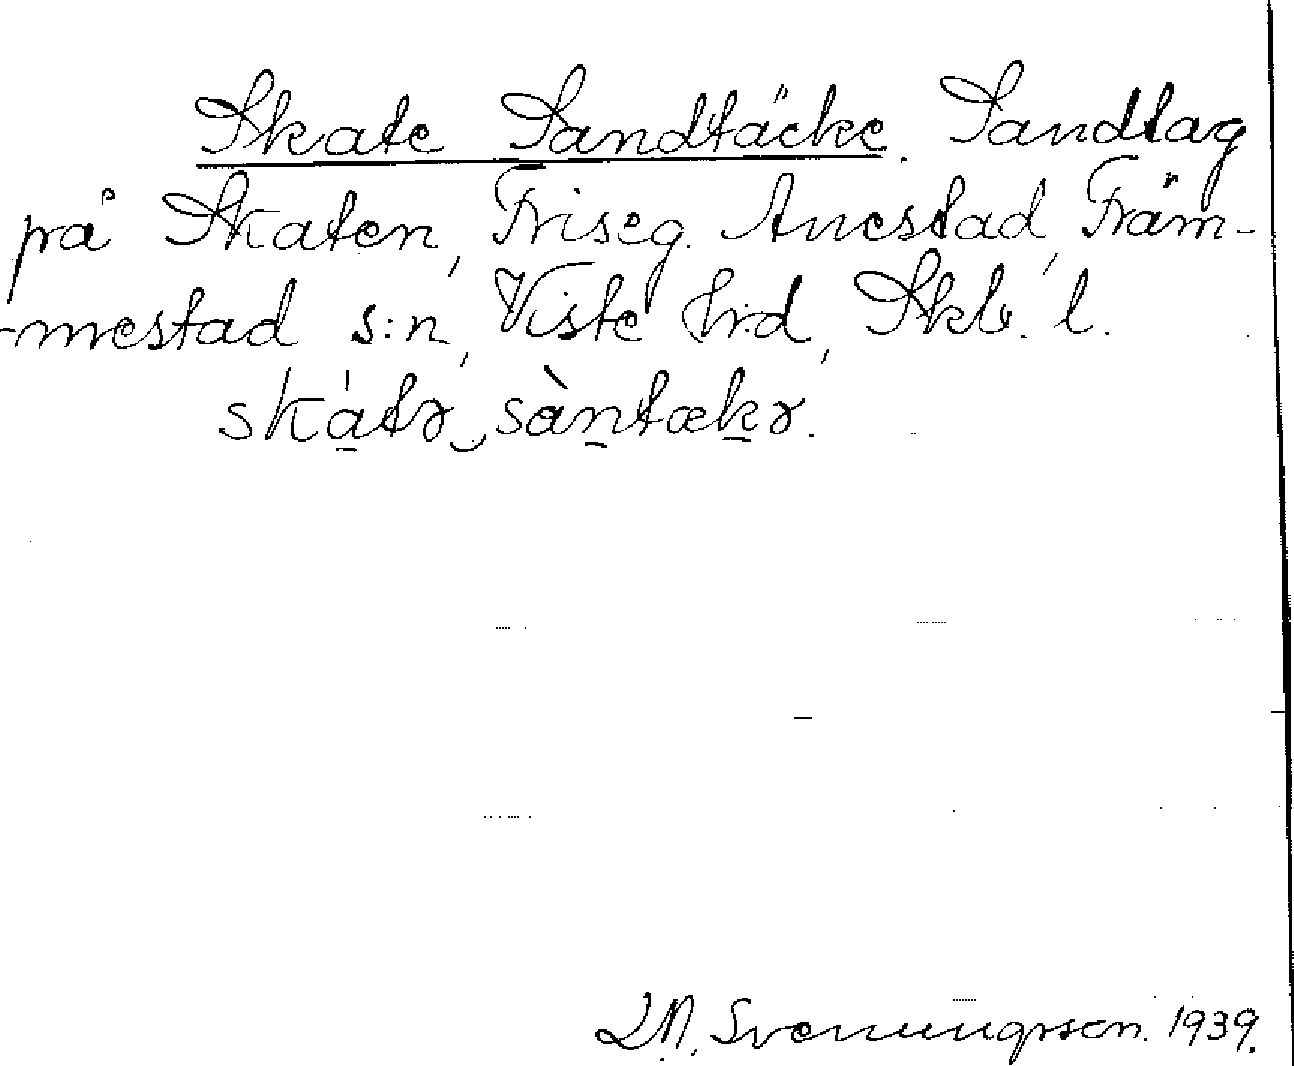 Skate Sandtäcke. Sandtag
på Skaten, Friseg. Anestad, Främ-
-mestad s:n, Viste hrd, Skb. l.
skátə sàntækə.
Svenungsson. 1939.